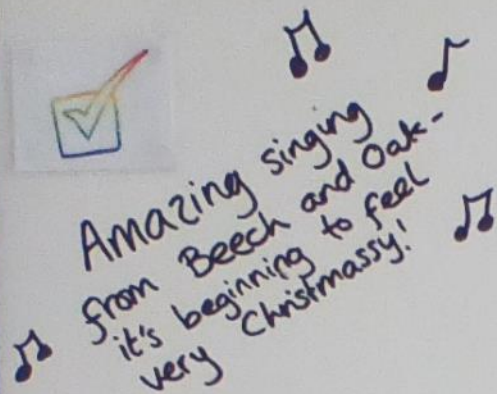 Amazing singing
from Beech and Oak-
it's beginning to feel
very Christmassy!